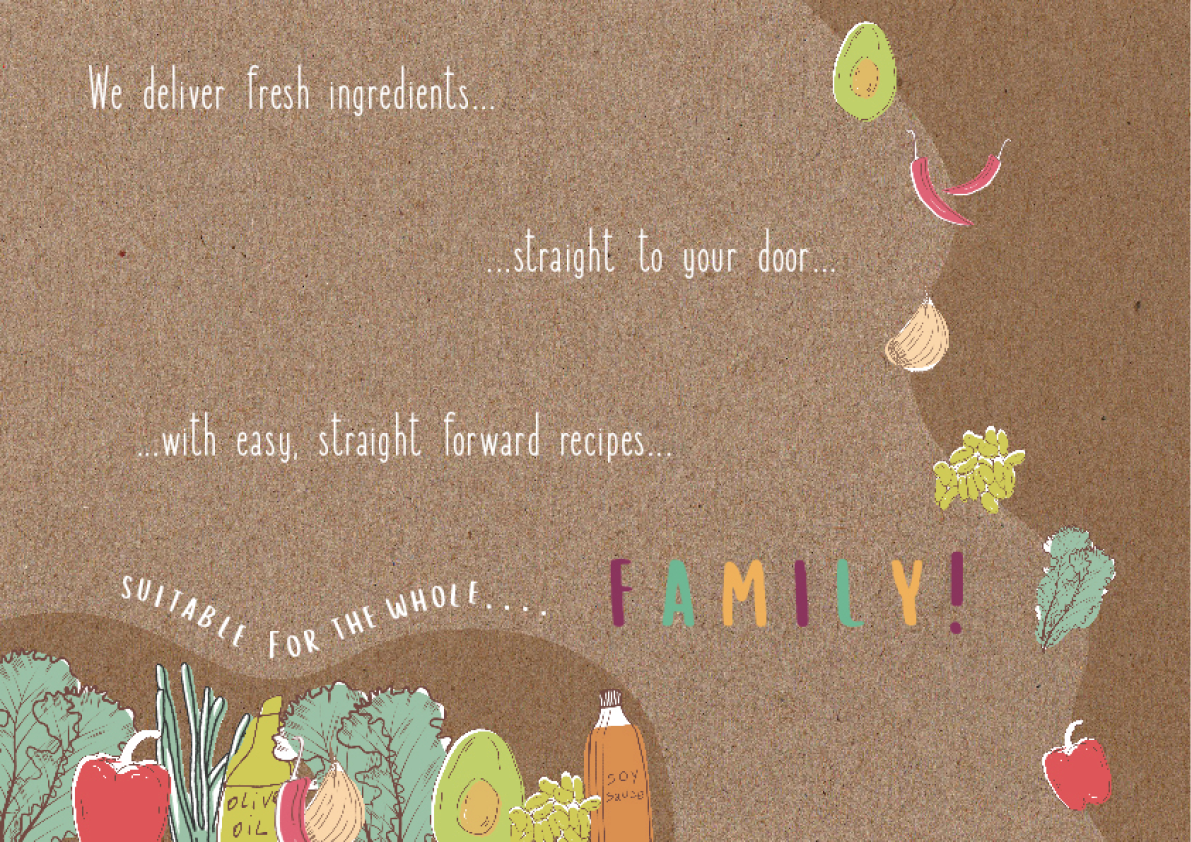 We deliver fresh ingredients...
...straight to your door...
...with easy, straight forward recipes...
SUITABLE FOR THE WHOLE....
FAMILY!
OLIVE
OIL
SOY
Sauce